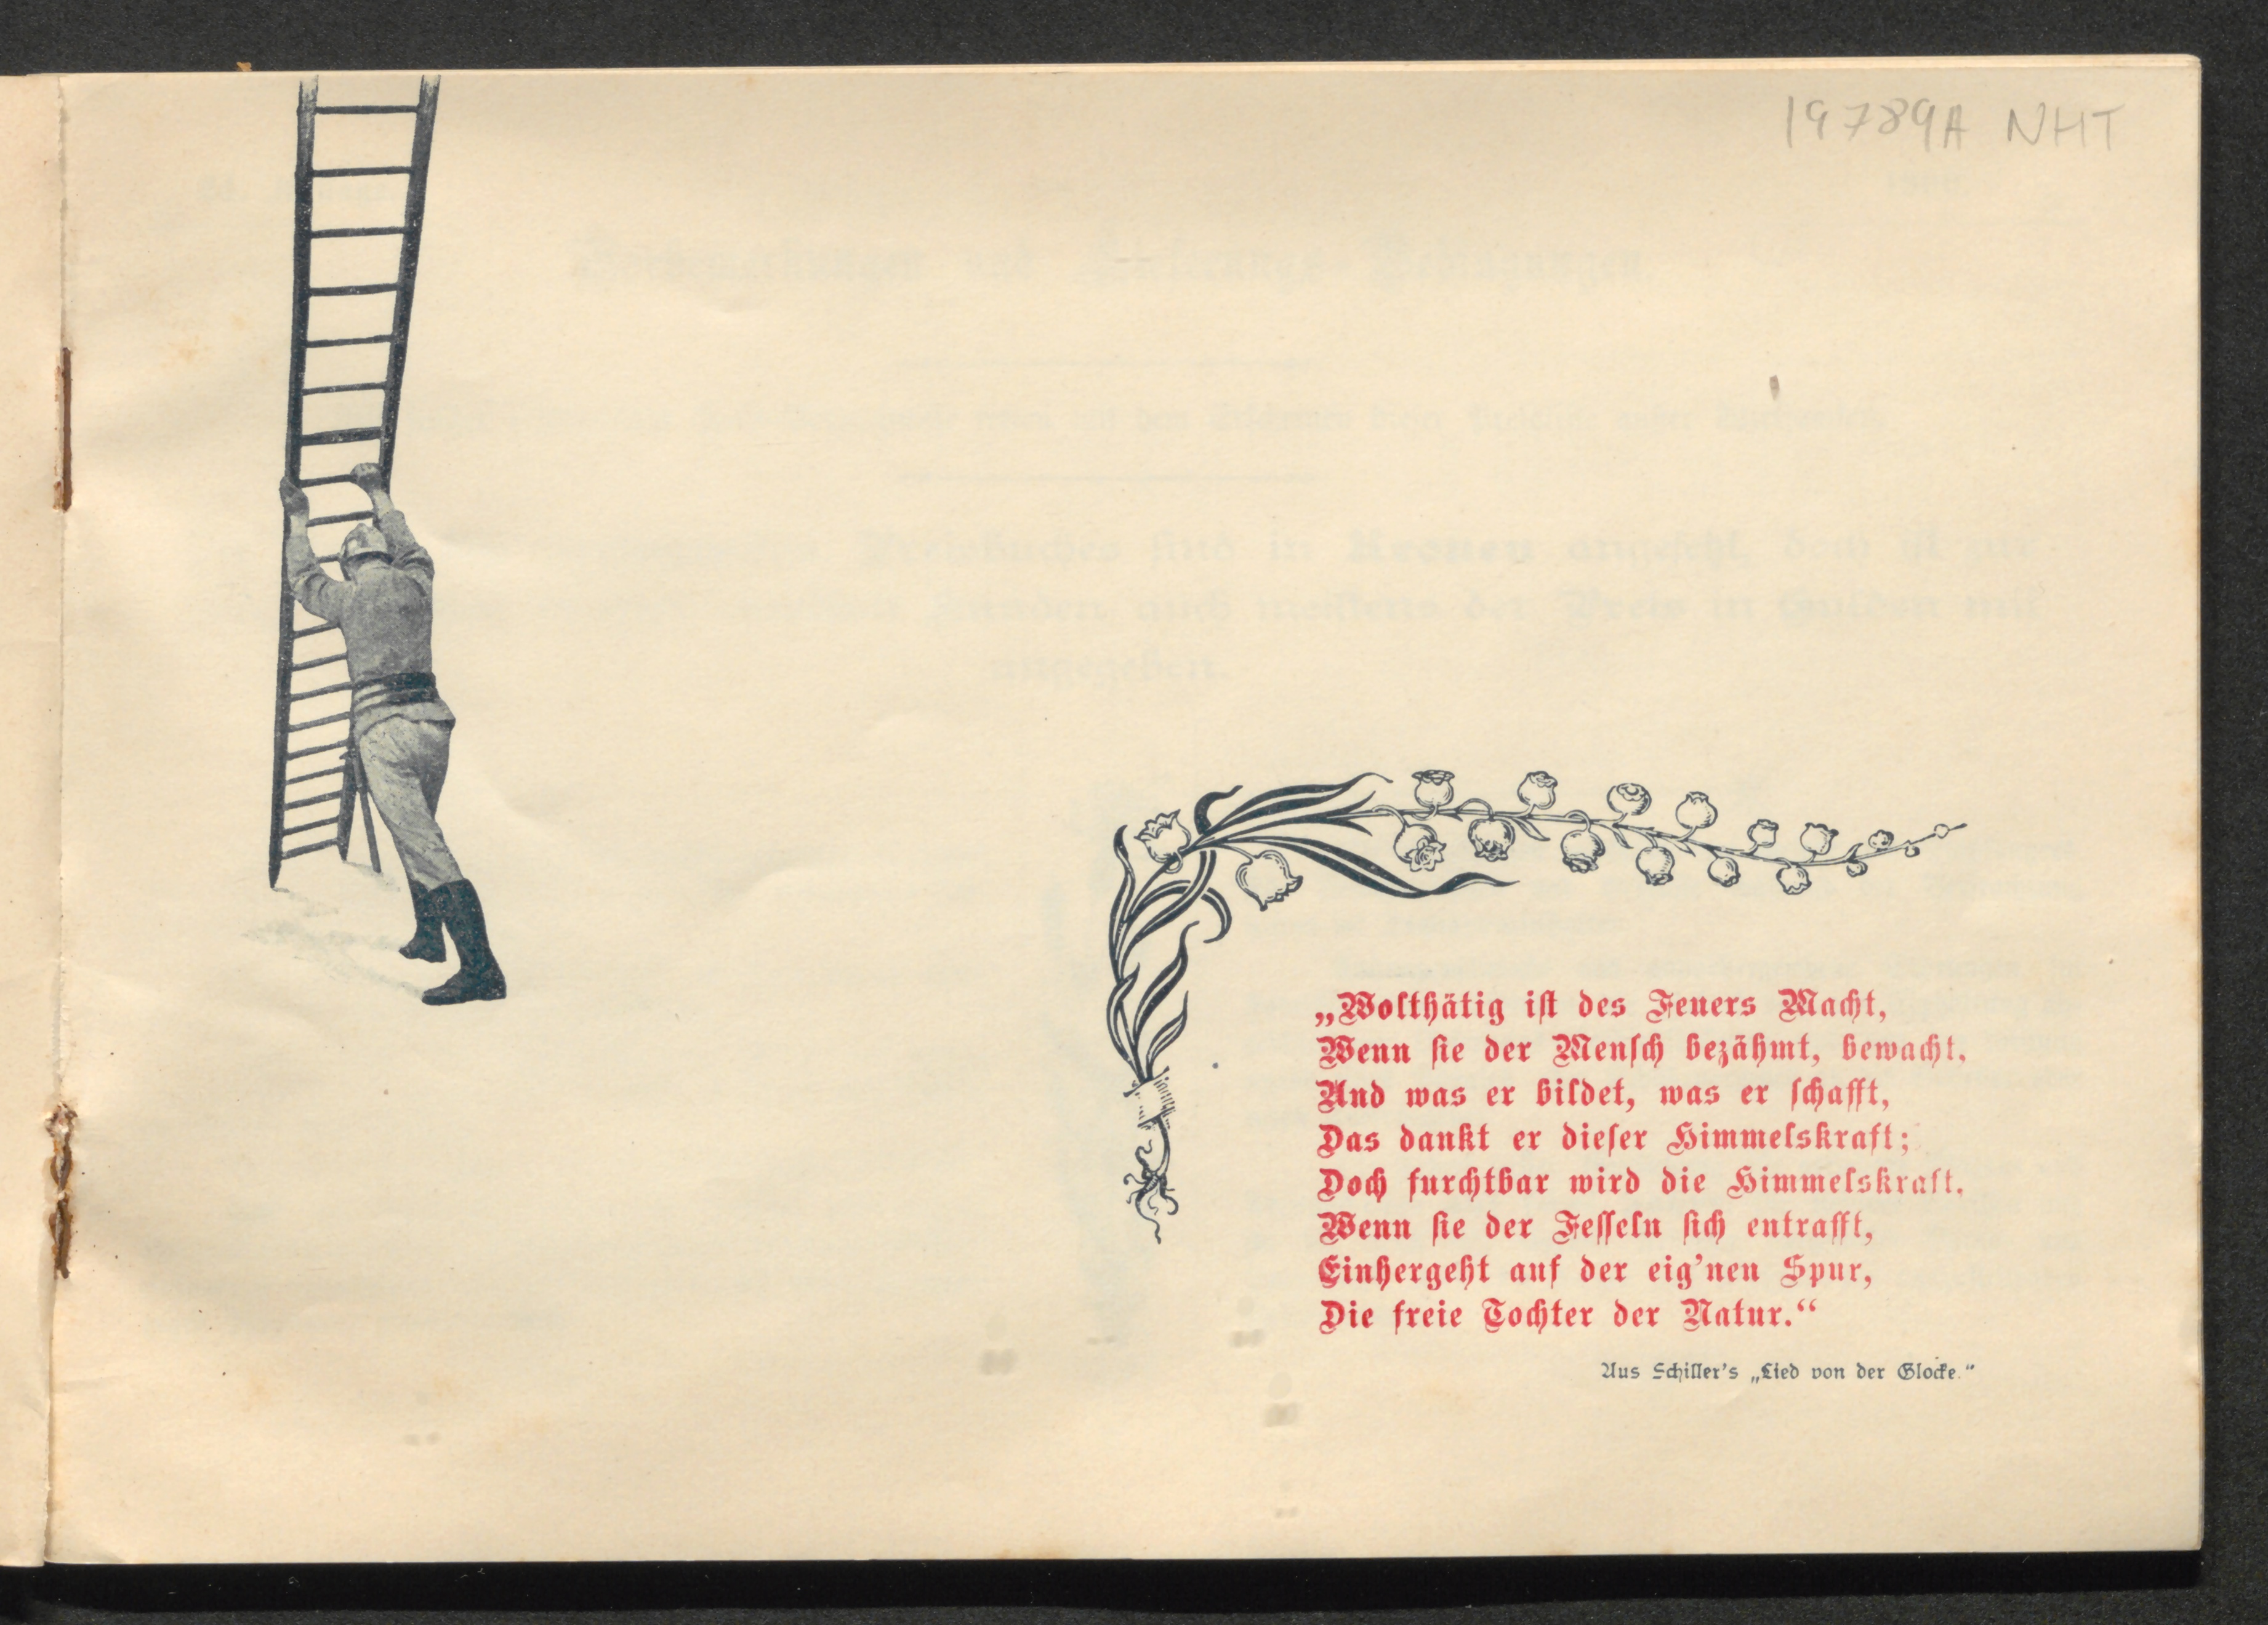 19789A NHT
„Wolthätig ist des Feuers Macht,
Wenn sie der Mensch bezähmt, bewacht,
Und was er bildet, was er schafft,
Das dankt er dieser Himmelskraft;
Doch furchtbar wird die Himmelskraft,
Wenn sie der Fesseln sich entrafft,
Einhergeht auf der eig'nen Spur,
Die freie Tochter der Natur.“
Aus Schiller's „Lied von der Glocke.“